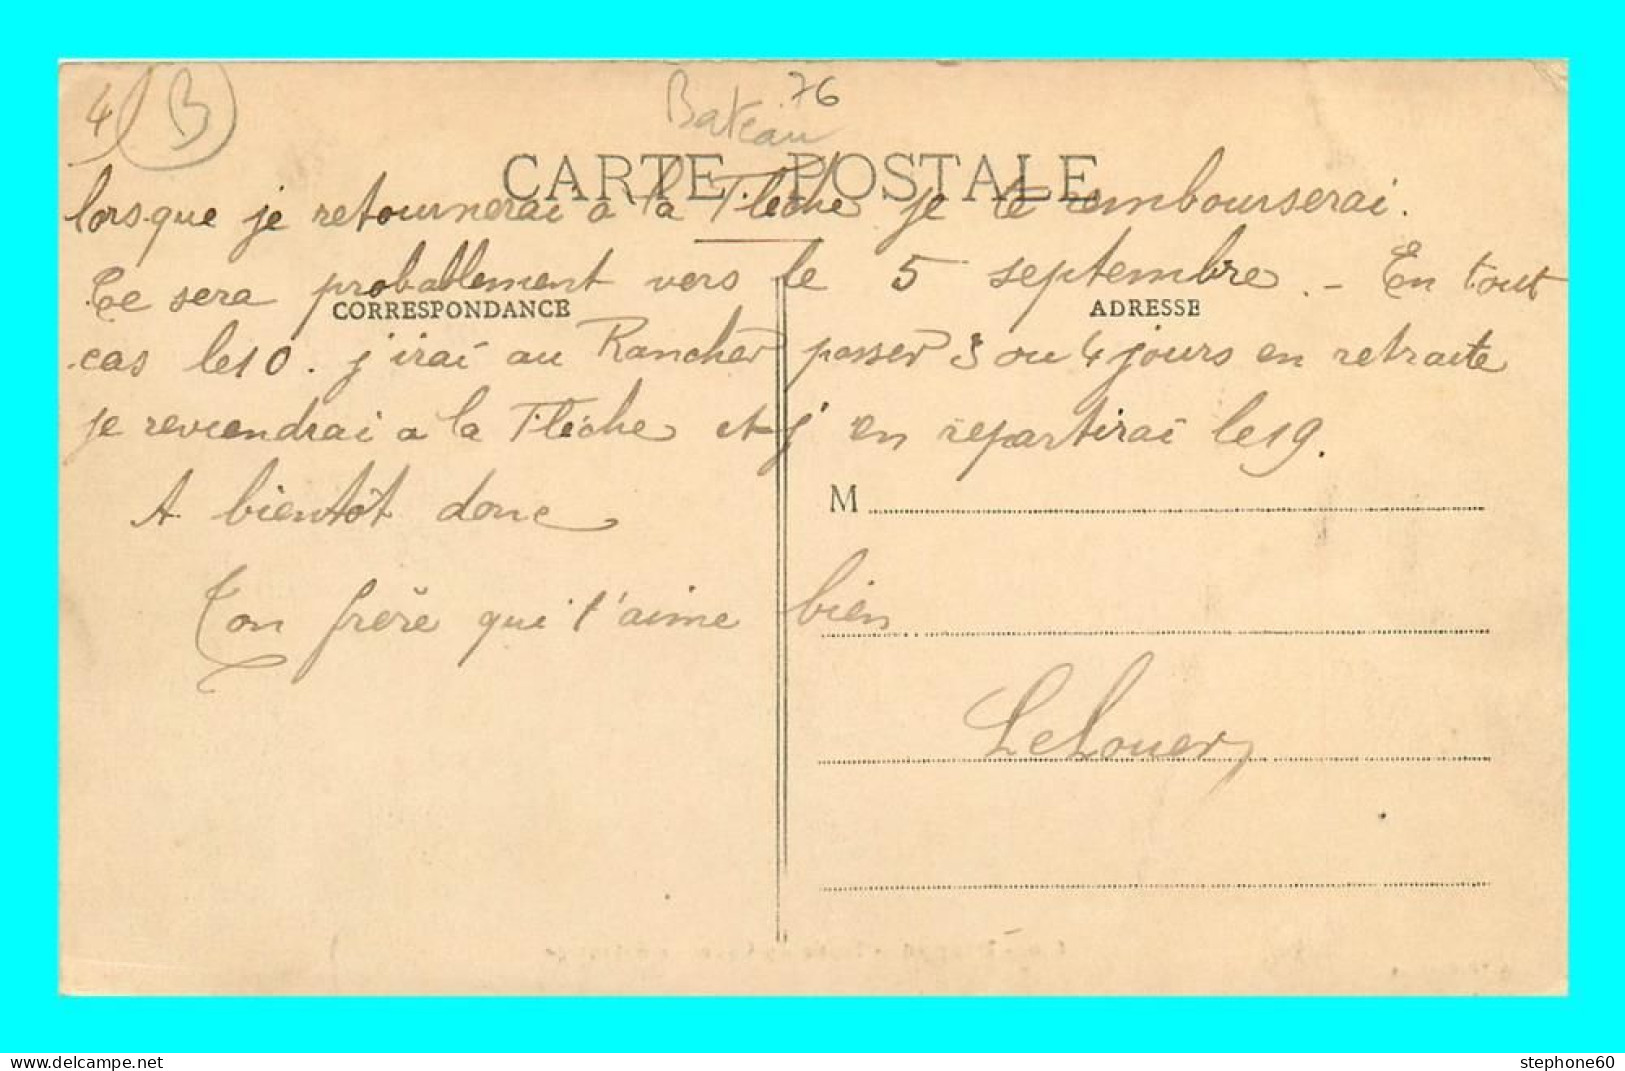 4 B
Bateau 76
CARTE POSTALE
lorsque je retournerai a la Flèche je te rembourserai.
Ce sera probablement vers le 5 septembre. - En tout
CORRESPONDANCE
ADRESSE
cas le 10. j'irai au Rancher passer 3 ou 4 jours en retraite
je reviendrai a la Flèche et j'en repartirai le 19.
A bientôt donc
M
Ton frère qui t'aime bien
LeLouer
delcampe.net
stephone60